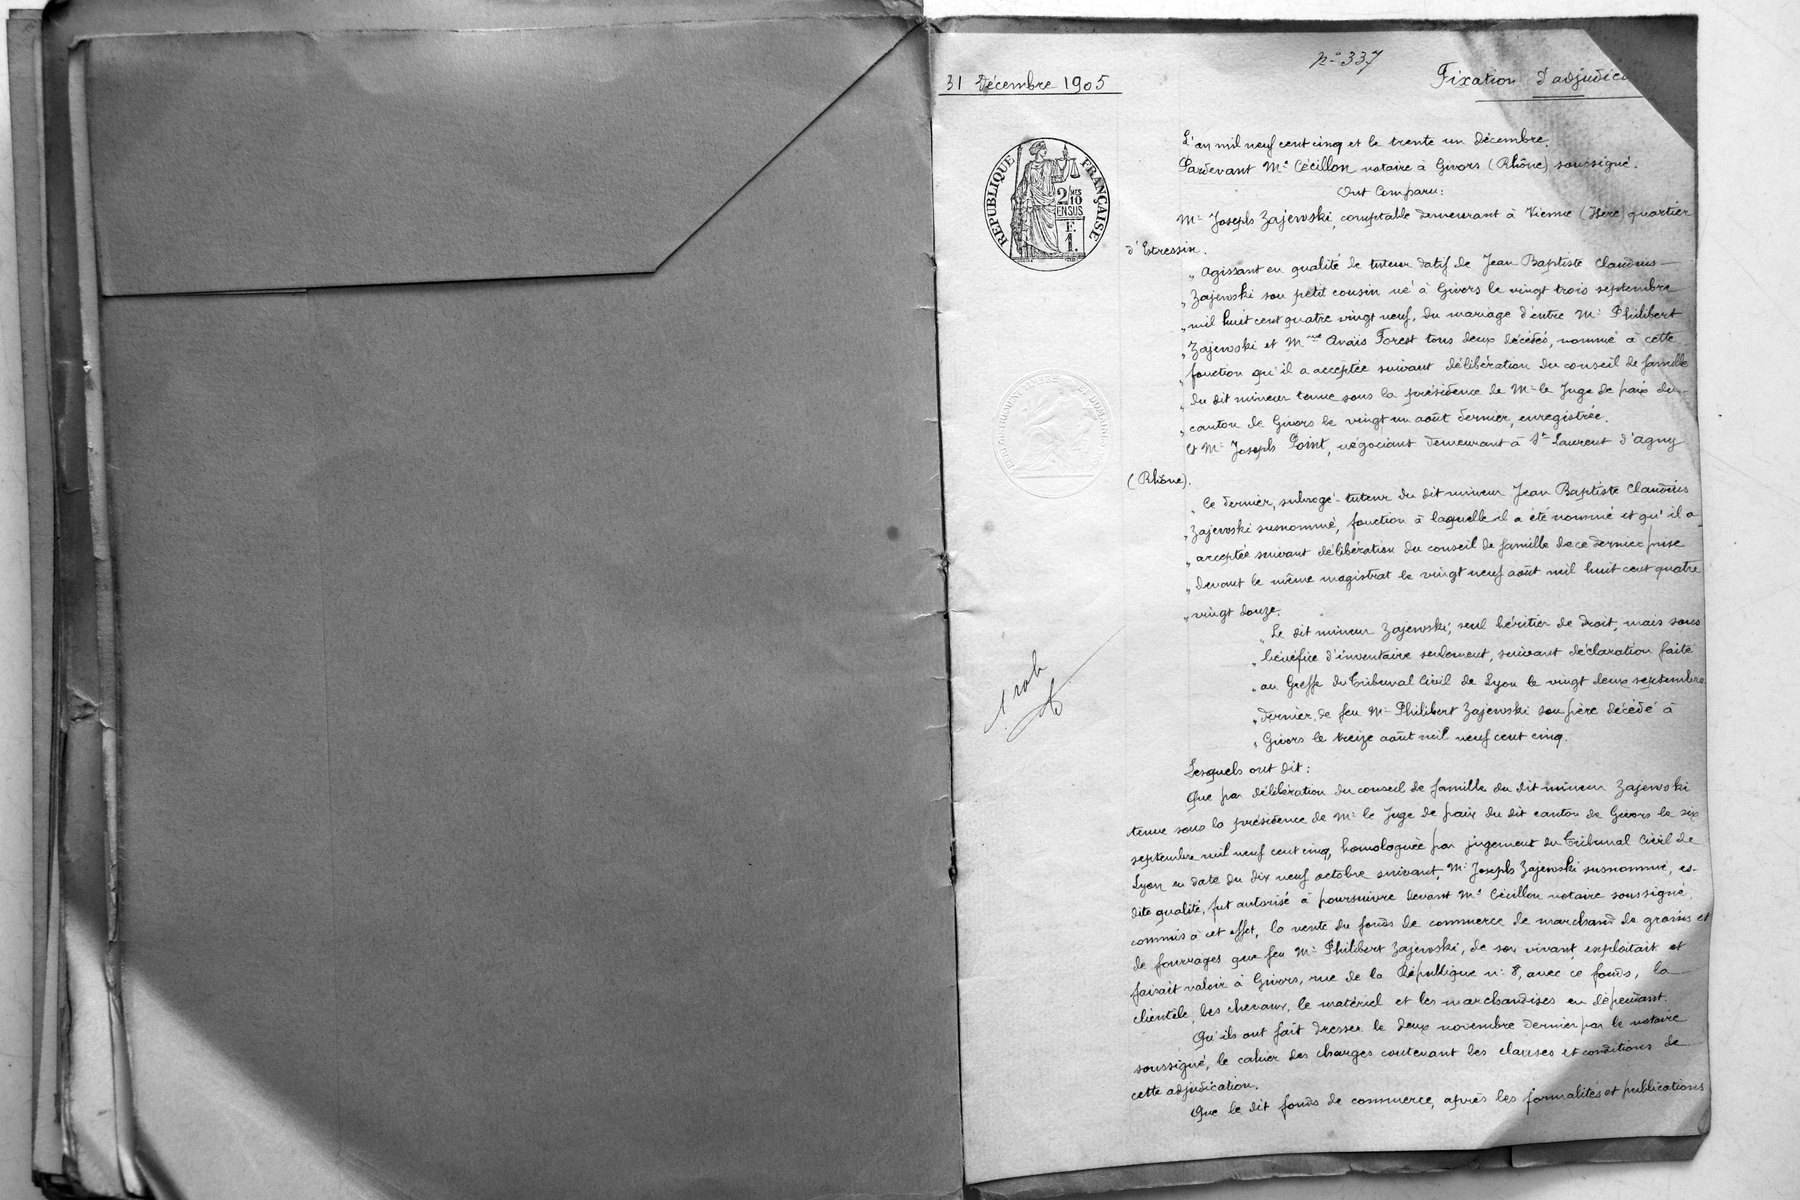 nº 337
31 Décembre 1905
Fixation d'adjudic
RÉPUBLIQUE FRANÇAISE
2/10 MES
EN SUS
F.
1.
L'an mil neuf cent cinq et le trente un décembre.
Pardevant Me Cécillon notaire à Givors (Rhône) soussigné.
Ont Comparu:
Mr Joseph Zajewski, comptable demeurant à Vienne (Isère) quartier
d'Estressin.
„ Agissant en qualité de tuteur datif de Jean Baptiste Claudius
„ Zajewski son petit cousin né à Givors le vingt trois septembre
„ mil huit cent quatre vingt neuf, du mariage d'entre Mr Philibert
„ Zajewski et Mme Anaïs Forest tous deux décédés, nommé à cette
„ fonction qu'il a acceptée suivant délibération du conseil de famille
„ du dit mineur tenue sous la présidence de Mr le Juge de paix du
„ canton de Givors le vingt un août dernier, enregistrée.
Et Mr Joseph Point, négociant demeurant à St Laurent d'agny
(Rhône).
„ Ce dernier, subrogé-tuteur du dit mineur Jean Baptiste Claudius
„ Zajewski susnommé, fonction à laquelle il a été nommé et qu'il a
„ acceptée suivant délibération du conseil de famille de ce dernier prise
„ devant le même magistrat le vingt neuf août mil huit cent quatre
„ vingt douze.
„ Le dit mineur Zajewski, seul héritier de droit, mais sous
„ bénéfice d'inventaire seulement, suivant déclaration faite
„ au Greffe du Tribunal Civil de Lyon le vingt deux septembre
„ dernier, de feu Mr Philibert Zajewski son père décédé à
„ Givors le treize août mil neuf cent cinq.
Lesquels ont dit:
Que par délibération du conseil de famille du dit mineur Zajewski
tenue sous la présidence de Mr le Juge de paix du dit canton de Givors le six
septembre mil neuf cent cinq, homologuée par jugement du Tribunal Civil de
Lyon en date du dix neuf octobre suivant, Mr Joseph Zajewski susnommé, es-
dite qualité, fut autorisé à poursuivre devant Me Cécillon notaire soussigné,
commis à cet effet, la vente du fonds de commerce de marchand de grains et
de fourrages que feu Mr Philibert Zajewski, de son vivant, exploitait et
faisait valoir à Givors, rue de la République nº 8, avec ce fonds, la
clientèle, les chevaux, le matériel et les marchandises en dépendant.
Qu'ils ont fait dresser le deux novembre dernier par le notaire
soussigné, le cahier des charges contenant les clauses et conditions de
cette adjudication.
Que le dit fonds de commerce, après les formalités et publications